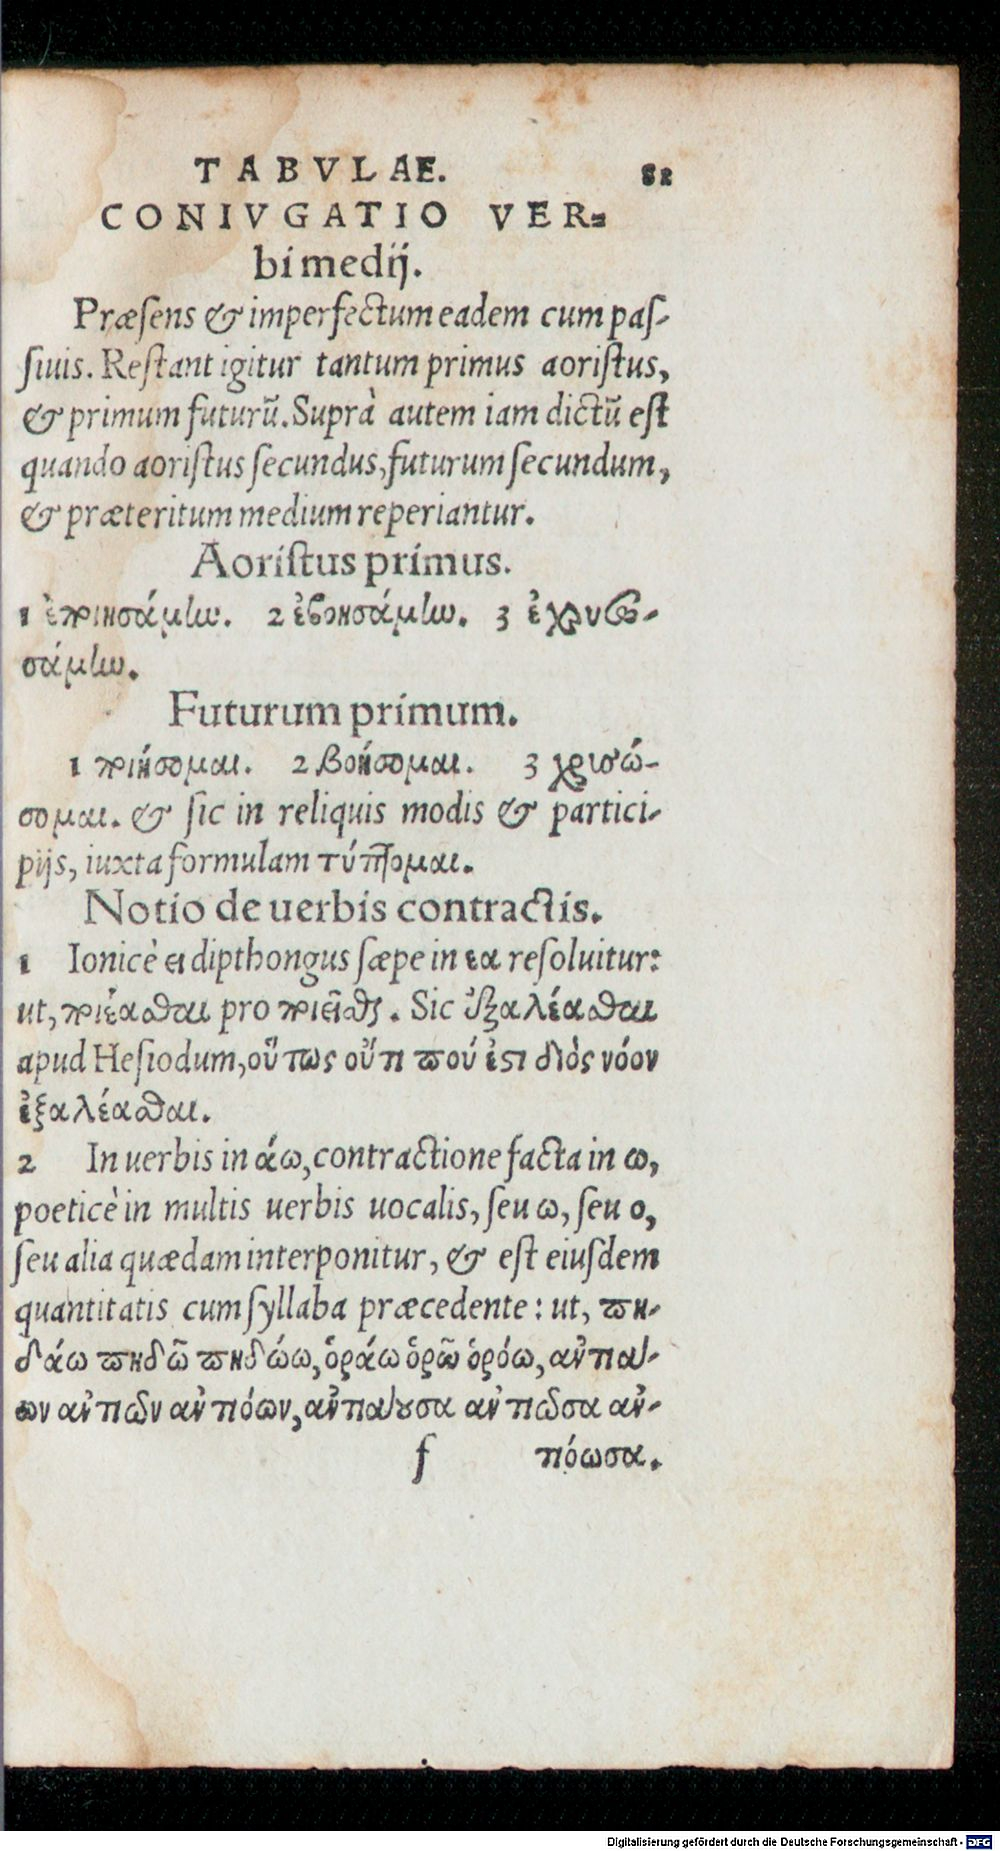 TABVLAE. 82
CONIVGATIO VER=
bi medij.
Præſens & imperfectum eadem cum paſ-
ſiuis. Reſtant igitur tantum primus aoriſtus,
& primum futurũ. Suprà autem iam dictũ eſt
quando aoriſtus ſecundus, futurum ſecundum,
& præteritum medium reperiantur.
Aoriſtus primus.
1 ἐποιησάμην. 2 ἐβοησάμην. 3 ἐχρυσω-
σάμην.
Futurum primum.
1 ποιήσομαι. 2 βοήσομαι. 3 χρισώ-
σομαι. & ſic in reliquis modis & partici-
pijs, iuxta formulam τύπτομαι.
Notio de uerbis contractis.
1 Ionicè ει dipthongus ſæpe in εα reſoluitur:
ut, ποιέεασθαι pro ποιεῖσθαι. Sic ἐξαλέασθαι
apud Heſiodum, οὕτως οὔτι πού ἐστι διὸς νόον
ἐξαλέασθαι.
2 In uerbis in άω, contractione facta in ω,
poeticè in multis uerbis uocalis, ſeu ω, ſeu ο,
ſeu alia quædam interponitur, & eſt eiuſdem
quantitatis cum ſyllaba præcedente: ut, πη-
δάω πηδῶ πηδώω, ὁράω ὁρῶ ὁρόω, αἰτιά-
ων αἰτιῶν αἰτιόων, αἰτιάουσα αἰτιῶσα αἰ-
f τιόωσα.
Digitalisierung gefördert durch die Deutsche Forschungsgemeinschaft - DFG